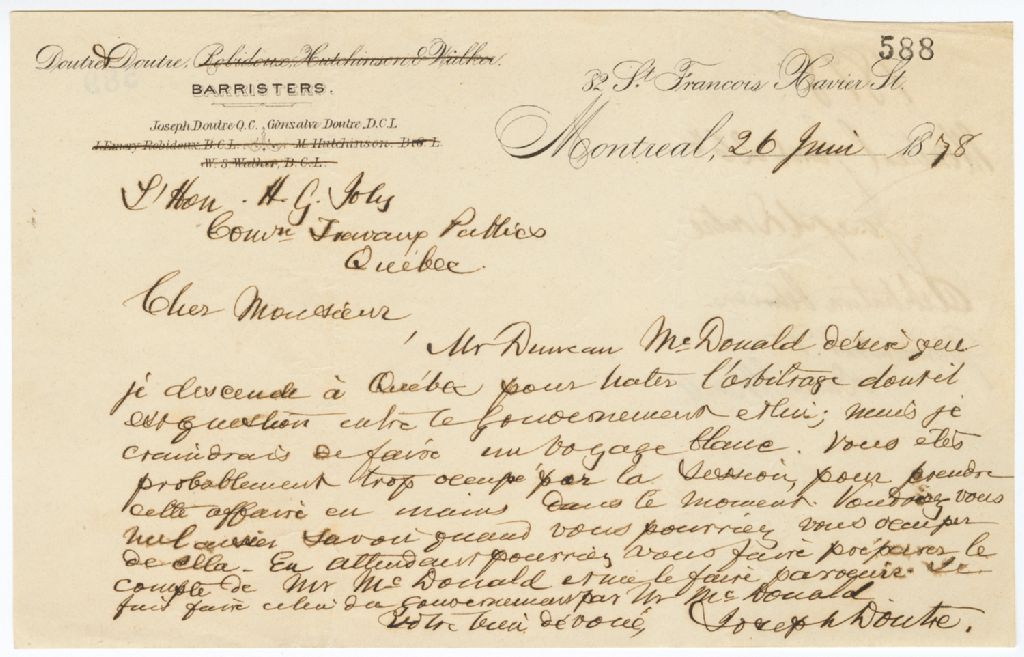 588
Doutre & Doutre. Robidoux, Hutchinson & Walker.
BARRISTERS.
Joseph Doutre Q.C. Gonzalve Doutre, D.C.L
J. Emery Robidoux, B.C.L. M. Hutchinson. B.C.L
W. S. Walker, B.C.L.
32 St. Francois Xavier St.
Montreal, 26 Juin 1878
L'Hon. H. G. Joly
Comre Travaux Publics
Québec.
Cher Monsieur
Mr Duncan McDonald désire que
je descende à Québec pour hater l'arbitrage dont il
est question entre le Gouvernement et lui; mais je
craindrais de faire un voyage blanc. Vous êtes
probablement trop occupé par la session, pour prendre
cette affaire en mains dans le moment. Voudriez vous
me laisser savoir quand vous pourriez vous occuper
de cela. En attendant pourriez vous faire préparer le
compte de Mr McDonald et me le faire parvenir. Je
fais faire celui du Gouvernement par Mr McDonald
Votre bien dévoué, Joseph Doutre.